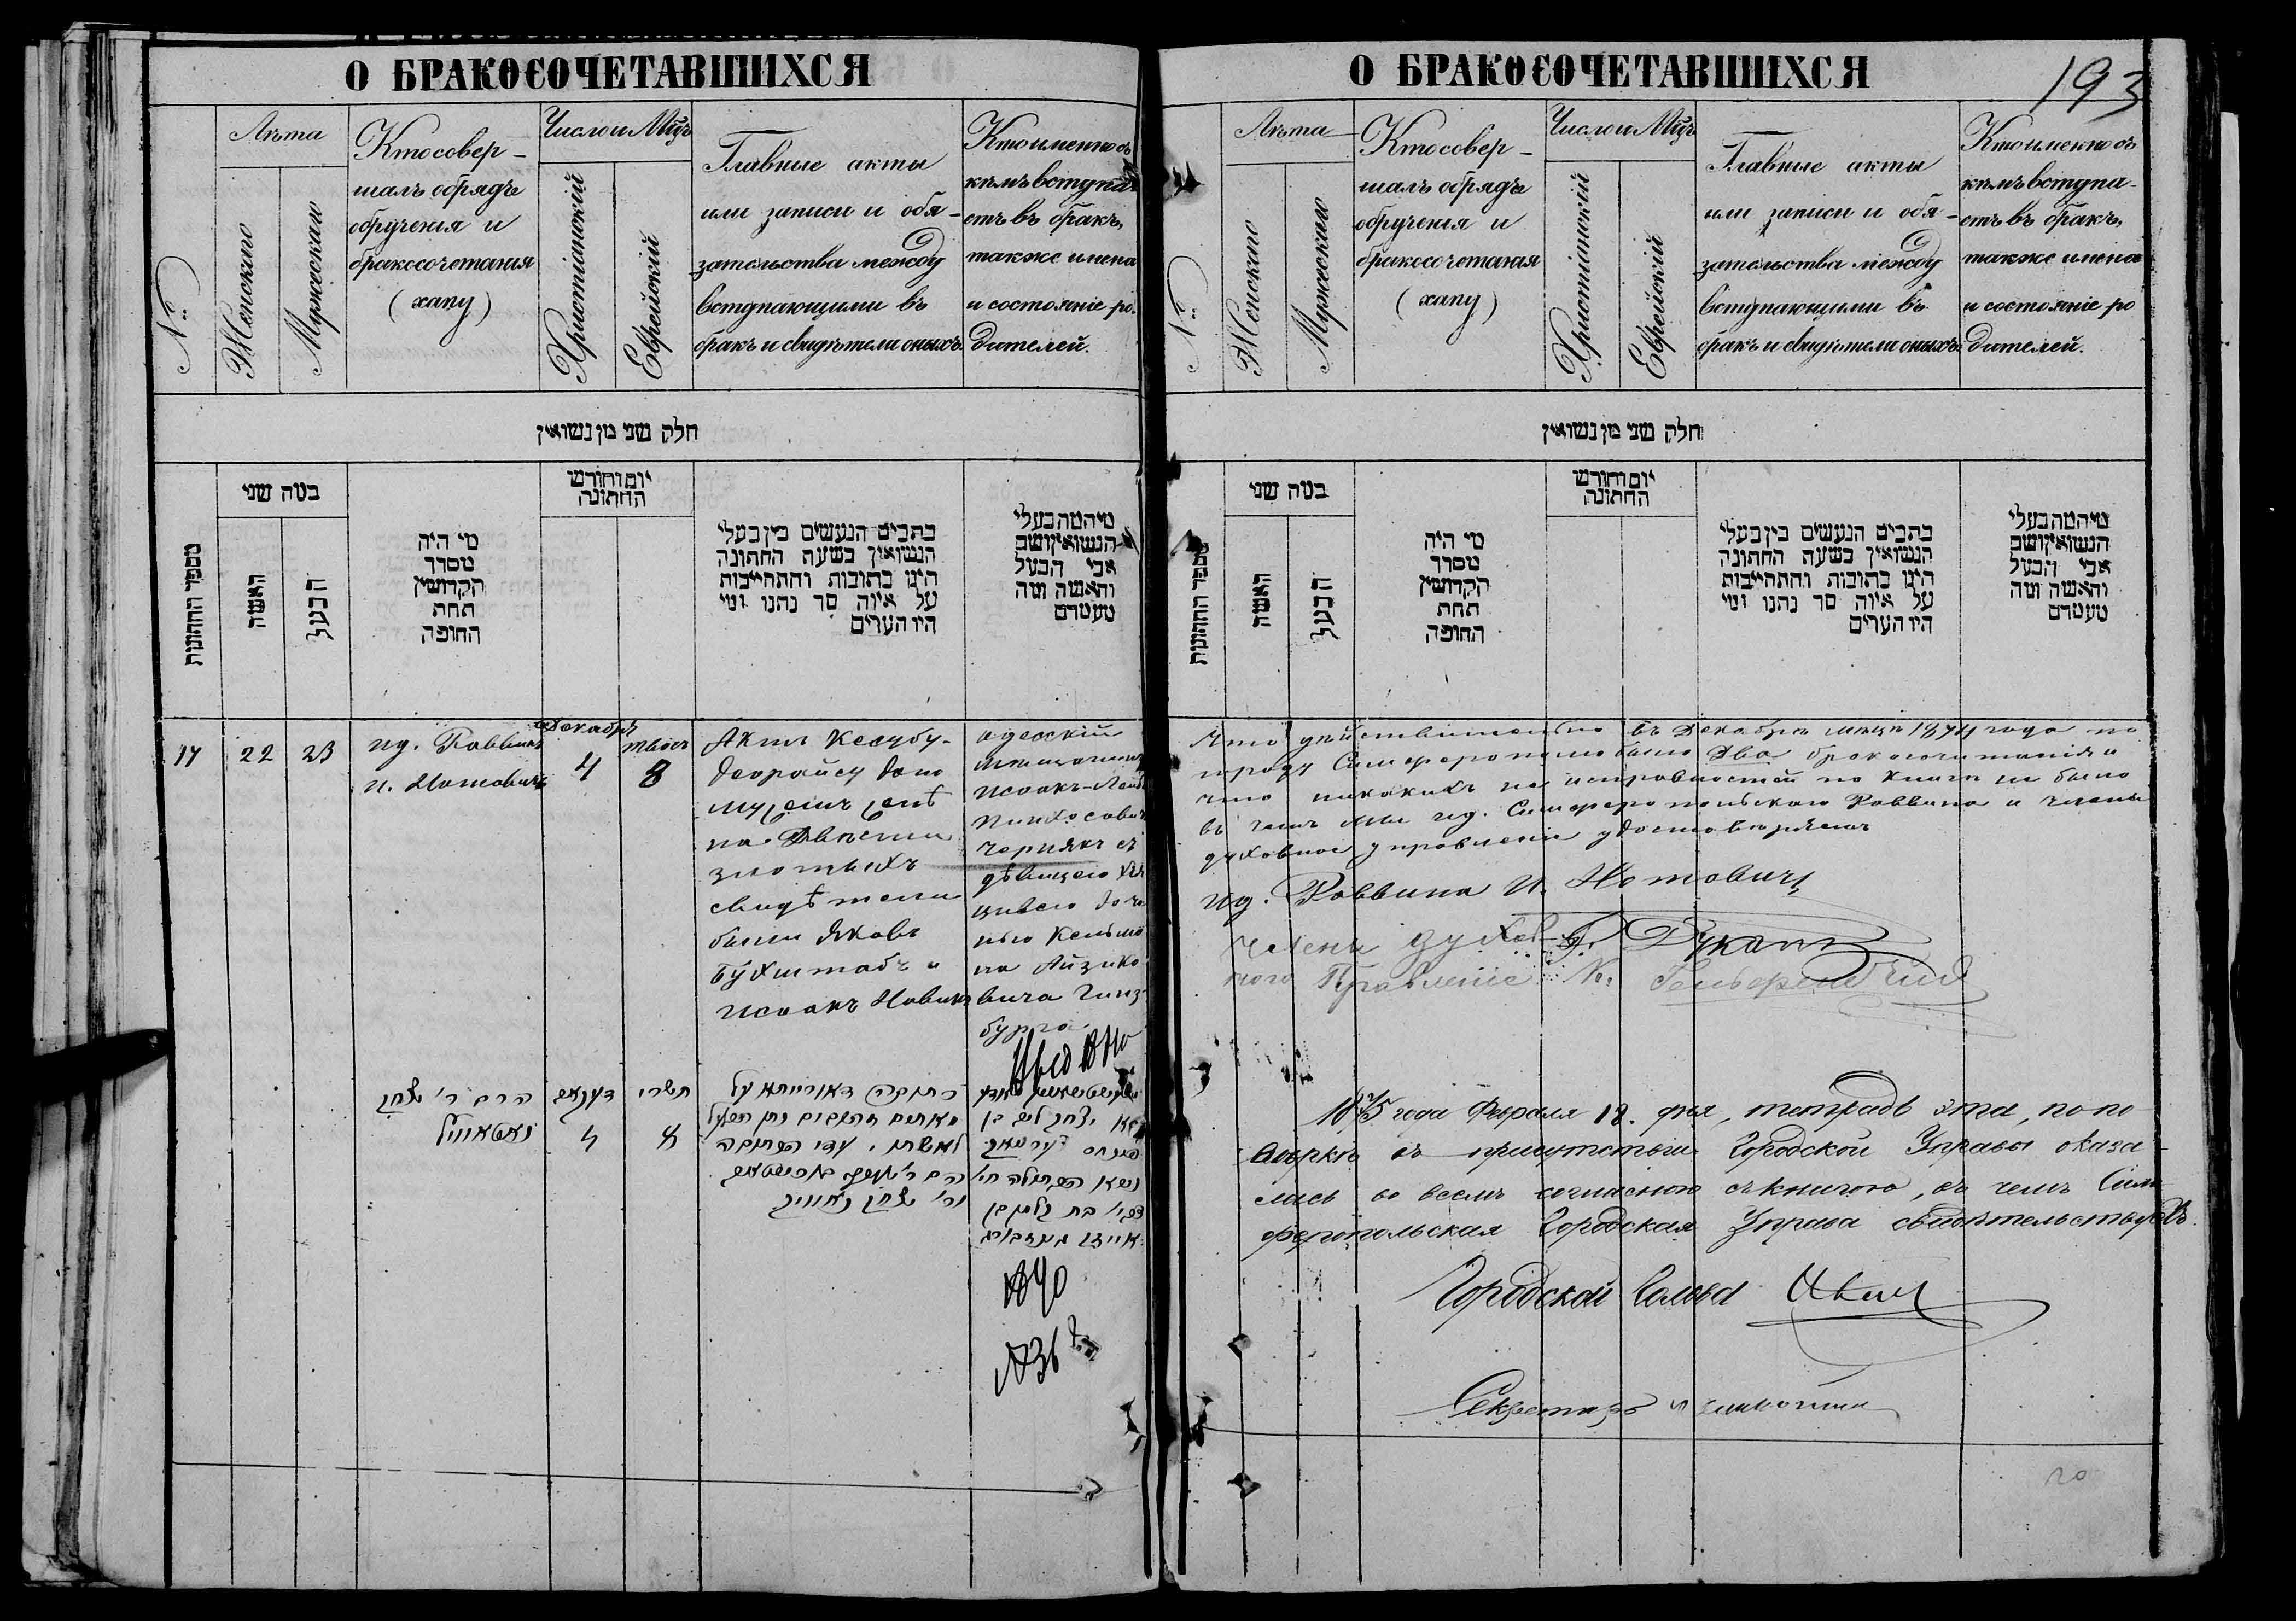 О БРАКОСОЧЕТАВШИХСЯ
№
Лѣта
Женскаго
Мужескаго
Кто совер-
шалъ обрядъ
обрученія и
бракосочетанія
(хапу)
Число и Мцъ
Христіанскій
Еврейскій
Главные акты
или записи и обя-
зательства между
вступающими въ
бракъ и свидѣтели оныхъ.
Кто именно съ
кѣмъ вступа-
етъ въ бракъ,
также имена
и состояніе ро-
дителей.
חלק שני מן נשואין
מספר החתונות
במה שני
האשה
הבעל
מי היה
מסדר
הקדושין
תחת
החופה
יום וחודש
החתונה
כתבים הנעשים בין בעלי
הנשואין בשעת החתונה
היינו כתובות והתחייבות
על איזה סך נתנו ומי
היו הערים
מי המה בעלי
הנשואין ושם
אבי הבעל
והאשה ומה
מעמדם
17
22
23
ид. Раввина
И. Нотовичъ
Декабрь
4
8
Актъ Кесубу-
Деорайсу дано
мужемъ женѣ
на Двѣсти
злотыхъ
свидѣтели
были Яковъ
Бухштабъ и
Исаакъ Новикъ
Одесскій
мѣщанинъ
Исаакъ-Лейба
Пинхосовичъ
Чернякъ съ
дѣвицею
дочерью
Кельма-
на Айзико-
вича Гинз-
бурга
הרב ר' יצחק
נאטאוויץ
דעקאב
4
תשרי
8
כתובה דאורייתא על
מאתים זהובים נתן הבעל
לאשתו, עדי הכתובה
ור' יצחק נאוויק
יצחק ליב בן
פנחס
О БРАКОСОЧЕТАВШИХСЯ
193
№
Лѣта
Женскаго
Мужескаго
Кто совер-
шалъ обрядъ
обрученія и
бракосочетанія
(хапу)
Число и Мцъ
Христіанскій
Еврейскій
Главные акты
или записи и обя-
зательства между
вступающими въ
бракъ и свидѣтели оныхъ.
Кто именно съ
кѣмъ вступа-
етъ въ бракъ,
также имена
и состояніе ро
дителей.
חלק שני מן נשואין
מספר החתונות
במה שני
האשה
הבעל
מי היה
מסדר
הקדושין
תחת
החופה
יום וחודש
החתונה
כתבים הנעשים בין בעלי
הנשואין בשעת החתונה
היינו כתובות והתחייבות
על איזה סך נתנו ומי
היו הערים
מי המה בעלי
הנשואין ושם
אבי הבעל
והאשה ומה
מעמדם
Что дѣйствительно въ Декабрѣ мѣсяцѣ 1874 года по
городу Симферополю было два бракосочетанія и
что никакихъ не исправностей по книгѣ не было
въ чемъ мы ид. Симферопольскаго Раввина и члены
духовное управленіе удостовѣряемъ
ид. Раввина И. Нотовичъ
Члены духов-
ного Правленіе
1875 года Февраля 18. дня, тетрадь эта, по по-
вѣркѣ въ присутствіи Городской Управы оказа-
лась во всемъ согласною съ книгою, въ чемъ Сим-
феропольская Городская Управа свидѣтельствуетъ.
Городской Голова Иванъ
Секретарь
20